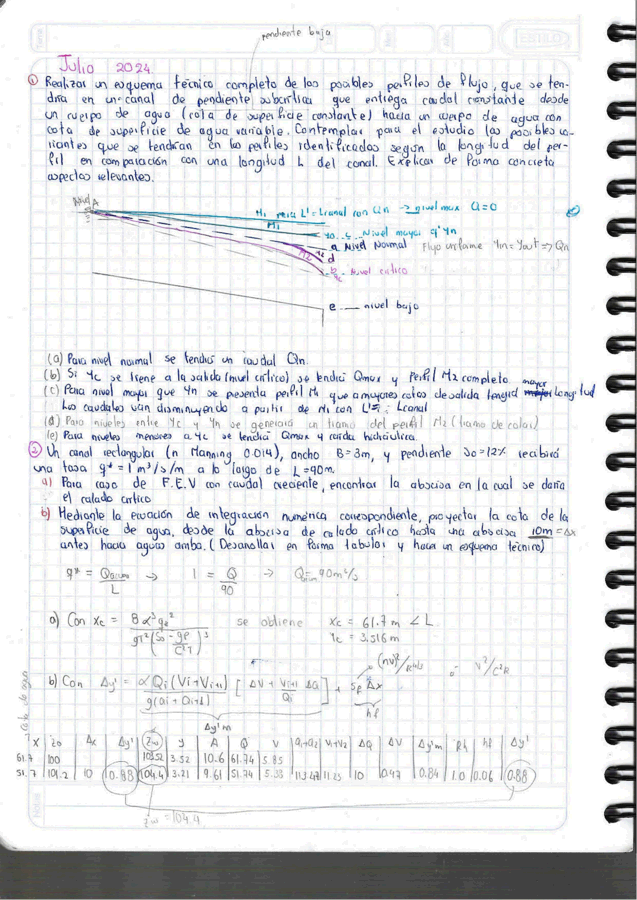 pendiente baja
Julio 2024.
① Realizar un esquema técnico completo de los posibles perfiles de flujo, que se ten-
dría en un canal de pendiente subcrítica que entrega caudal constante desde
un cuerpo de agua (cota de superficie constante) hacia un cuerpo de agua con
cota de superficie de agua variable. Contemplar para el estudio las posibles va-
riantes que se tendrían en los perfiles identificados según la longitud del per-
fil en comparación con una longitud L del canal. Explicar de forma concreta
aspectos relevantes.
Nivel A
M1 para L' = Lcanal con Qn → nivel max Q=0
M1
yo c Nivel mayor q' Yn
a Nivel Normal Flujo uniforme Yn = Yout => Qn
M2
d
b Nivel crítico Yc
e nivel bajo
(a) Para nivel normal se tendrá un caudal Qn.
(b) Si Yc se tiene a la salida (nivel crítico) se tendrá Qmax y Perfil M2 completo
(c) Para nivel mayor que Yn se presenta perfil M1 que a mayores cotas de salida tengrá mayor longitud
Los caudales van disminuyendo a partir de M1 con L' = Lcanal
(d) Para niveles entre Yc y Yn se generará un tramo del perfil M2 (tramo de colas)
(e) Para niveles menores a Yc se tendrá Qmax y caída hidráulica.
② Un canal rectangular (n Manning 0.014), ancho B=3m, y pendiente so=12% recibirá
una tasa q* = 1 m³/s/m a lo largo de L=90m.
a) Para caso de F.E.V con caudal creciente, encontrar la abscisa en la cual se daría
el calado crítico
b) Mediante la ecuación de integración numérica correspondiente, proyectar la cota de la
superficie de agua, desde la abscisa de calado crítico hasta una abscisa 10m = Δx
antes hacia aguas arriba. (Desarrollar en forma tabular y hacer un esquema técnico)
q* = Q / L → 1 = Q / 90 → Q = 90 m³/s
a) Con xc = 8 α³ q*² / gT² (So - gP / C²T)³ se obtiene xc = 61.7 m < L
Yc = 3.516 m
b) Con Δy' = α Qi (Vi + Vi+1) / g(Qi + Qi+1) [ΔV + Vi+1 / Qi ΔQ] + Sf Δx
(nV)² / R^4/3 o V² / C²R
Δy'm hf
x zo Δx Δy' Zw y A Q V Q1+Q2 V1+V2 ΔQ ΔV Δy'm Rh hf Δy'
61.7 100 103.52 3.52 10.6 61.74 5.85
51.7 101.2 10 0.88 104.4 3.21 9.61 51.74 5.38 113.47 11.23 10 0.47 0.84 1.0 0.06 0.88
zw = 104.4